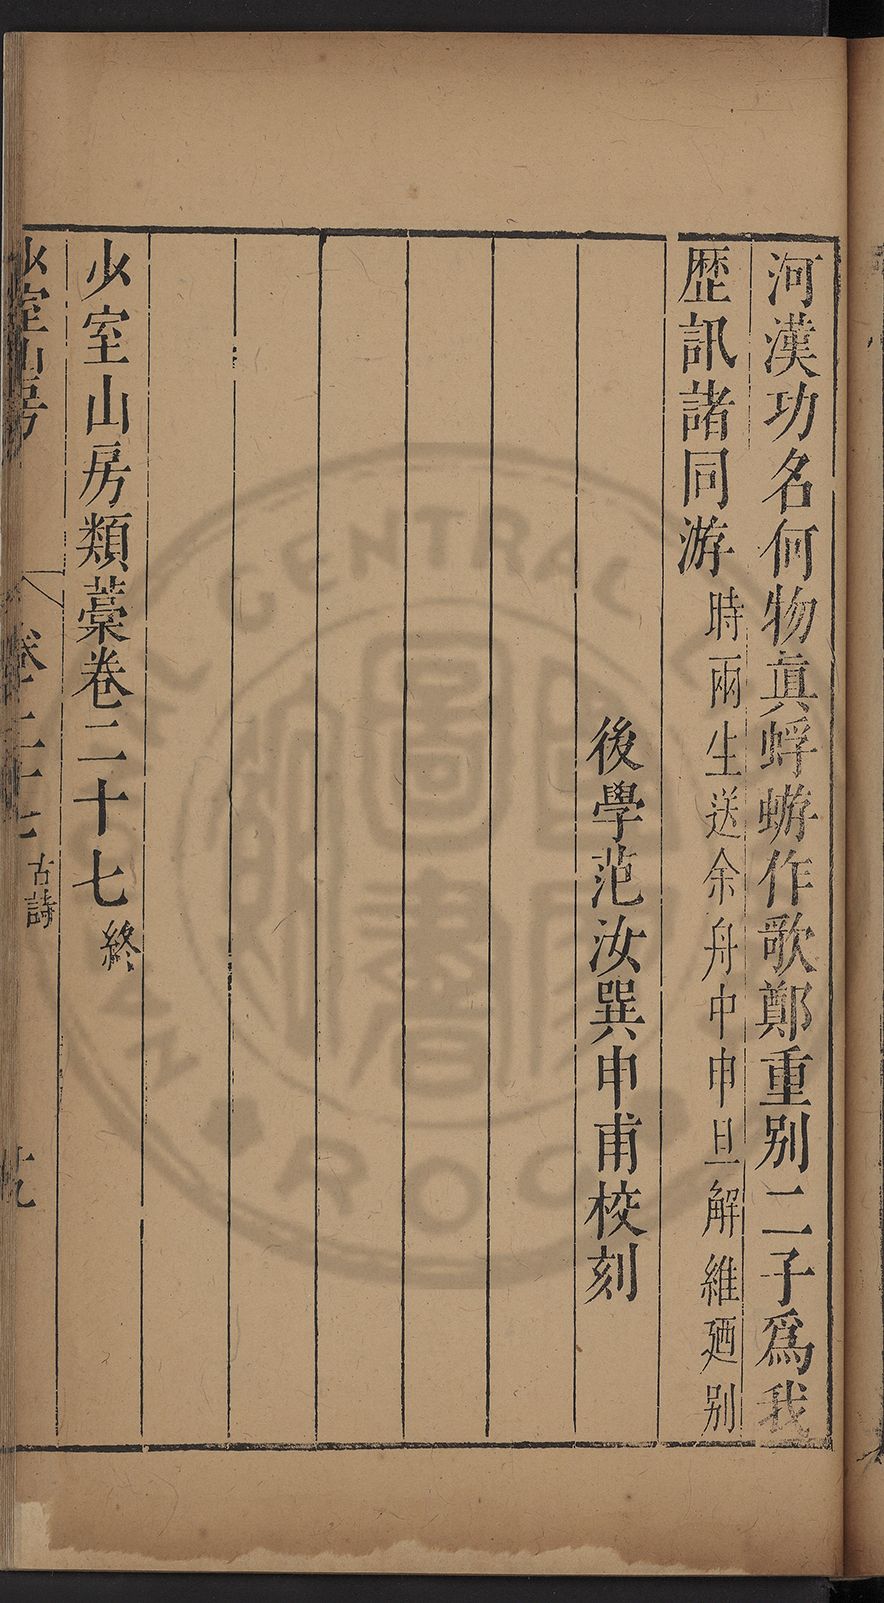 河漢功名何物真蜉蝣作歌鄭重別二子爲我
歴訊諸同游時兩生送余舟中申旦解維廼别
後學范汝巽申甫校刻
少室山房類藁卷二十七終
少室山房 卷二十七 古詩